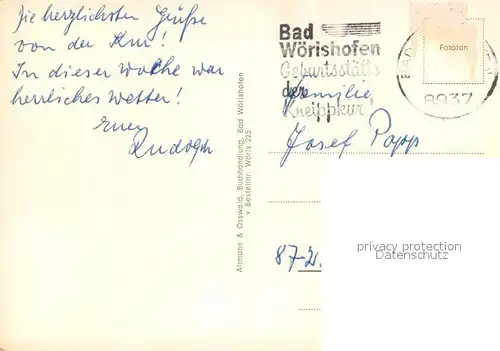 Die herzlichsten Grüße
von der Kur!
In dieser Woche war
herrliches Wetter!
Euer
Rudolph
Altmann & Osswald, Buchhandlung, Bad Wörishofen
v Bestellnr. Wöris 225
Bad
Wörishofen
Geburtsstätte
der
Kneippkur
BAD
8937
Fototon
Familie
Josef Popp
privacy protection
Datenschutz
87-21.